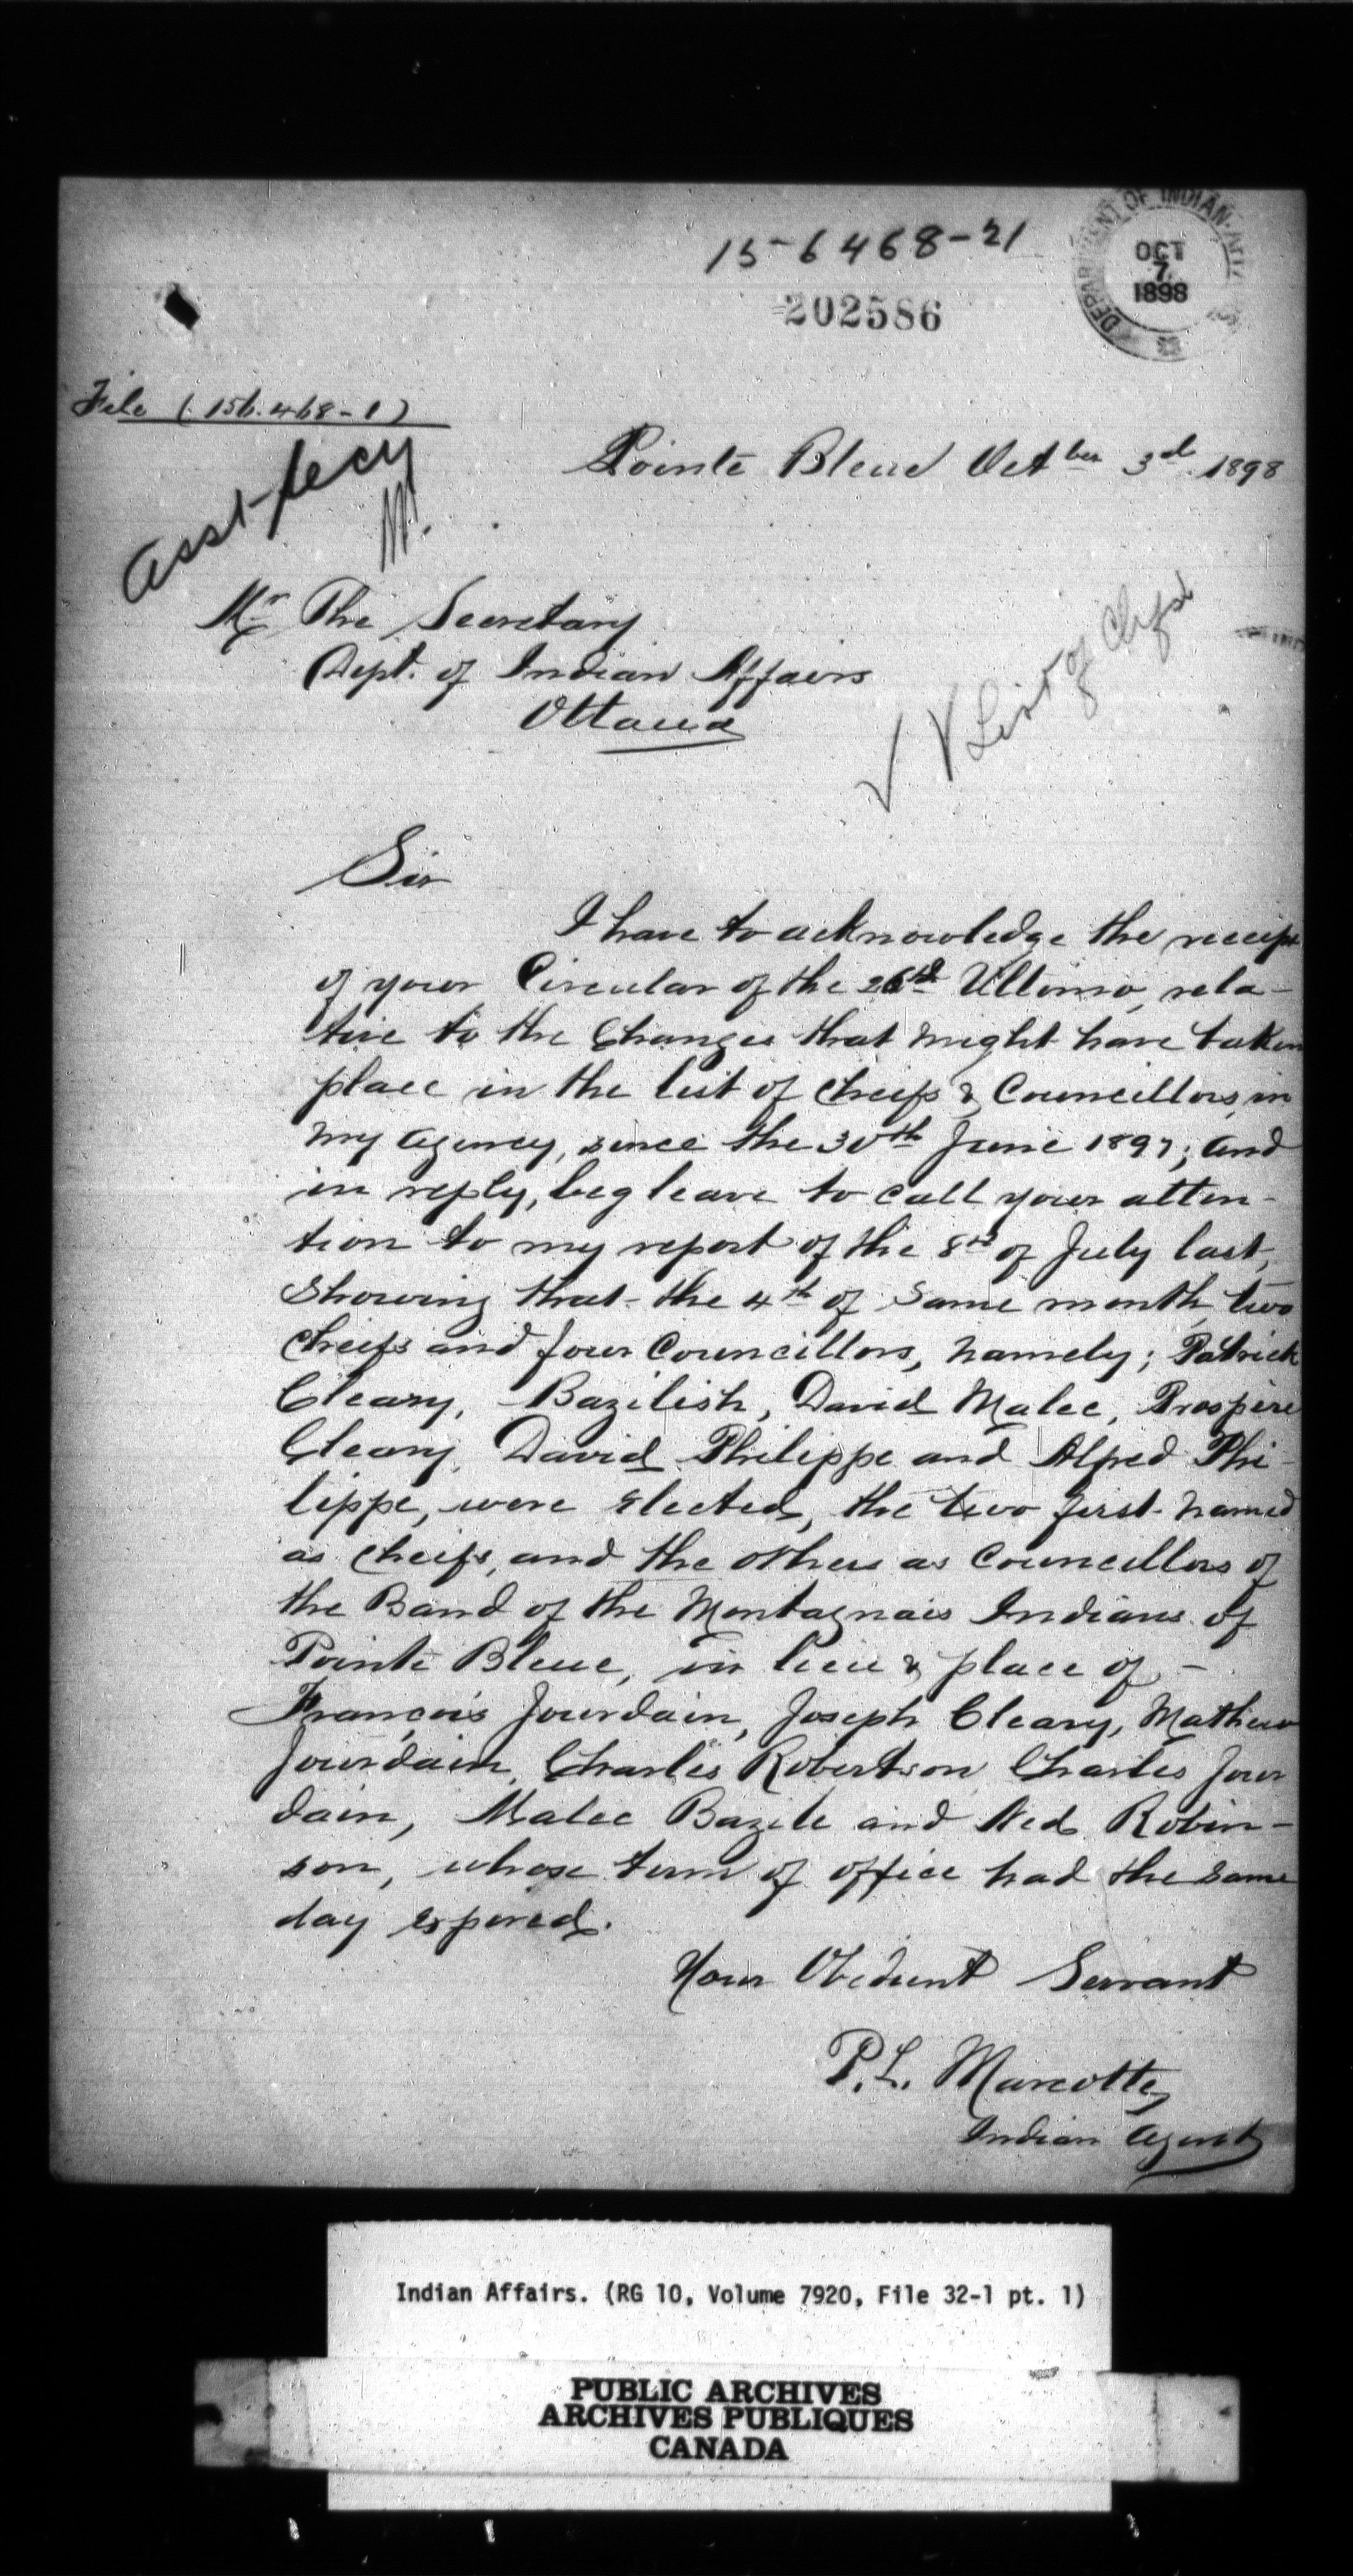 156468-21
DEPARTMENT OF INDIAN
OCT
7
1898
202586
File (156.468-1)
Asst Secy
Pointe Bleue Octber 3rd 1898
Mr The Secretary
Dept. of Indian Affairs
Ottawa
List of Chfs
Sir
I have to acknowledge the receipt
of your Circular of the 26th Ultimo, rela-
tive to the Changes that might have taken
place in the list of cheifs & Councillors, in
my agency, since the 30th June 1897; and
in reply, beg leave to call your atten-
tion to my report of the 8th of July last,
Showing that the 4th of same month, two
cheifs and four Councillors, namely; Patrick
Cleary, Bazilish, David Malec, Prospère
Cleary, David Philippe and Alfred Phi-
lippe, were elected, the two first named
as cheifs, and the others as Councillors of
the Band of the Montagnais Indians of
Pointe Bleue, in lieu & place of -
François Jourdain, Joseph Cleary, Mathew
Jourdain, Charles Robertson Charles Jour
dain, Malec Bazile and Ned Robin-
son, whose term of office had the same
day expired.
Your Obedient Servant
P.L. Marcotte
Indian Agent
Indian Affairs. (RG 10, Volume 7920, File 32-1 pt. 1)
PUBLIC ARCHIVES
ARCHIVES PUBLIQUES
CANADA